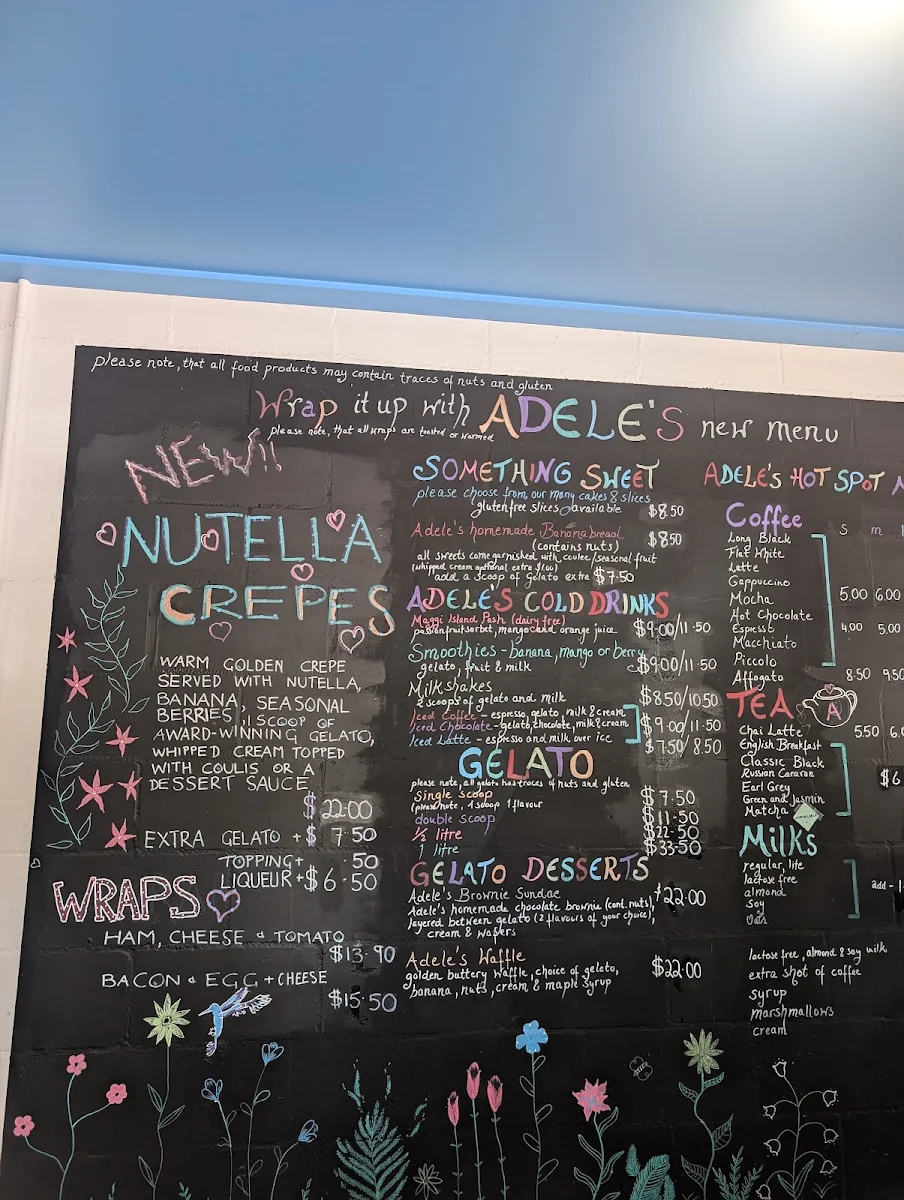 please note, that all food products may contain traces of nuts and gluten
Wrap it up with ADELE'S new menu
please note, that all wraps are toasted or warmed
NEW!!
NUTELLA
CREPES
WARM GOLDEN CREPE
SERVED WITH NUTELLA,
BANANA, SEASONAL
BERRIES, 1 SCOOP OF
AWARD-WINNING GELATO,
WHIPPED CREAM TOPPED
WITH COULIS OR A
DESSERT SAUCE
$22.00
EXTRA GELATO +$ 7.50
TOPPING+ .50
LIQUEUR+$6.50
WRAPS
HAM, CHEESE & TOMATO
$13.90
BACON & EGG + CHEESE
$15.50
SOMETHING SWEET
please choose from our many cakes & slices
gluten free slices available $8.50
Adele's homemade Bananabread $8.50
(contains nuts)
all sweets come garnished with coulee/seasonal fruit
(whipped cream optional extra
add a scoop of gelato extra $7.50
ADELE'S COLD DRINKS
Maggi Island Pash (dairy free)
passionfruit sorbet, mango and orange juice $9.00/11.50
Smoothies - banana, mango or berry
gelato, fruit & milk $9.00/11.50
Milkshakes
2 scoops of gelato and milk $8.50/10.50
Iced Coffee - espresso, gelato, milk & cream
Iced Chocolate - gelato, chocolate, milk & cream $9.00/11.50
Iced Latte - espresso and milk over ice $7.50/8.50
GELATO
please note, all gelato has traces of nuts and gluten
single scoop $7.50
(please note, 1 scoop 1 flavour
double scoop $11.50
½ litre $22.50
1 litre $33.50
GELATO DESSERTS
Adele's Brownie Sundae $22.00
Adele's homemade chocolate brownie (cont. nuts),
layered between gelato (2 flavours of your choice),
cream & wafers
Adele's Waffle
golden buttery waffle, choice of gelato, $22.00
banana, nuts, cream & maple syrup
ADELE'S HOT SPOT
Coffee S m
Long Black
Flat White
Latte
Cappuccino
Mocha 5.00 6.00
Hot Chocolate
Espresso 4.00 5.00
Macchiato
Piccolo
Affogato 8.50 9.50
TEA A
Chai Latte 5.50
English Breakfast
Classic Black
Russian Caravan $6
Earl Grey
Green and Jasmin
Matcha
Milks
regular, lite
lactose free
almond add -
Soy
Oats
lactose free, almond & soy milk
extra shot of coffee
syrup
marshmallows
cream